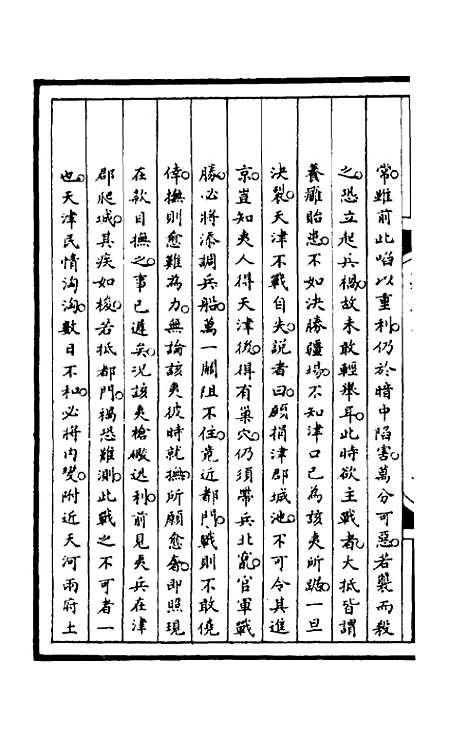 常。雖前此啗以重利。仍於暗中陷害。萬分可惡。若襲而殺
之。恐立起兵禍。故未敢輕舉耳。此時欲主戰者。大抵皆謂
養癰貽患。不如決勝疆場。不知津口已為該夷所踞。一旦
決裂。天津不戰自失。說者曰。願捐津郡城池。不可令其進
京。豈知夷人得天津後。得有巢穴。仍須帶兵北竄。官軍戰
勝。必將添調兵船。萬一闌阻不住。竟近都門。戰則不敢僥
倖。撫則愈難為力。無論該夷彼時就撫。所願愈奢。即照現
在款目撫之。事已遲矣。況該夷槍礮迅利。前見夷兵在津
郡爬城。其疾如梭。若抵都門。禍恐難測。此戰之不可者一
也。天津民情洶洶。數日不和。必將內變。附近天河兩府土